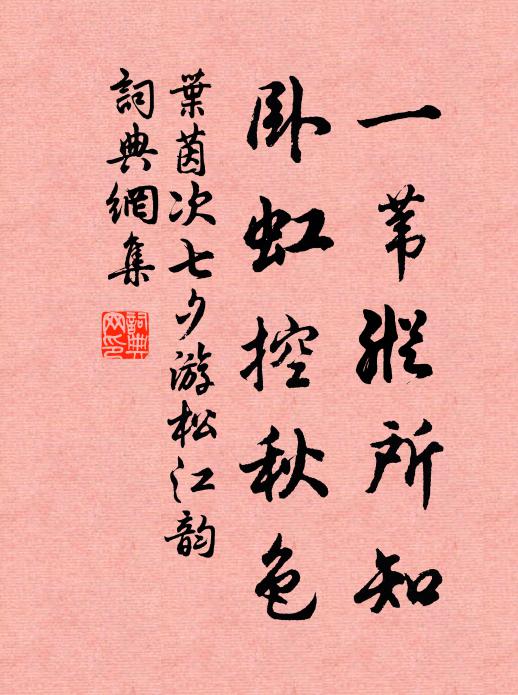 一苇縱所知
卧虹控秋色
葉茵次七夕游松江韵
詞典網集
詞典网印